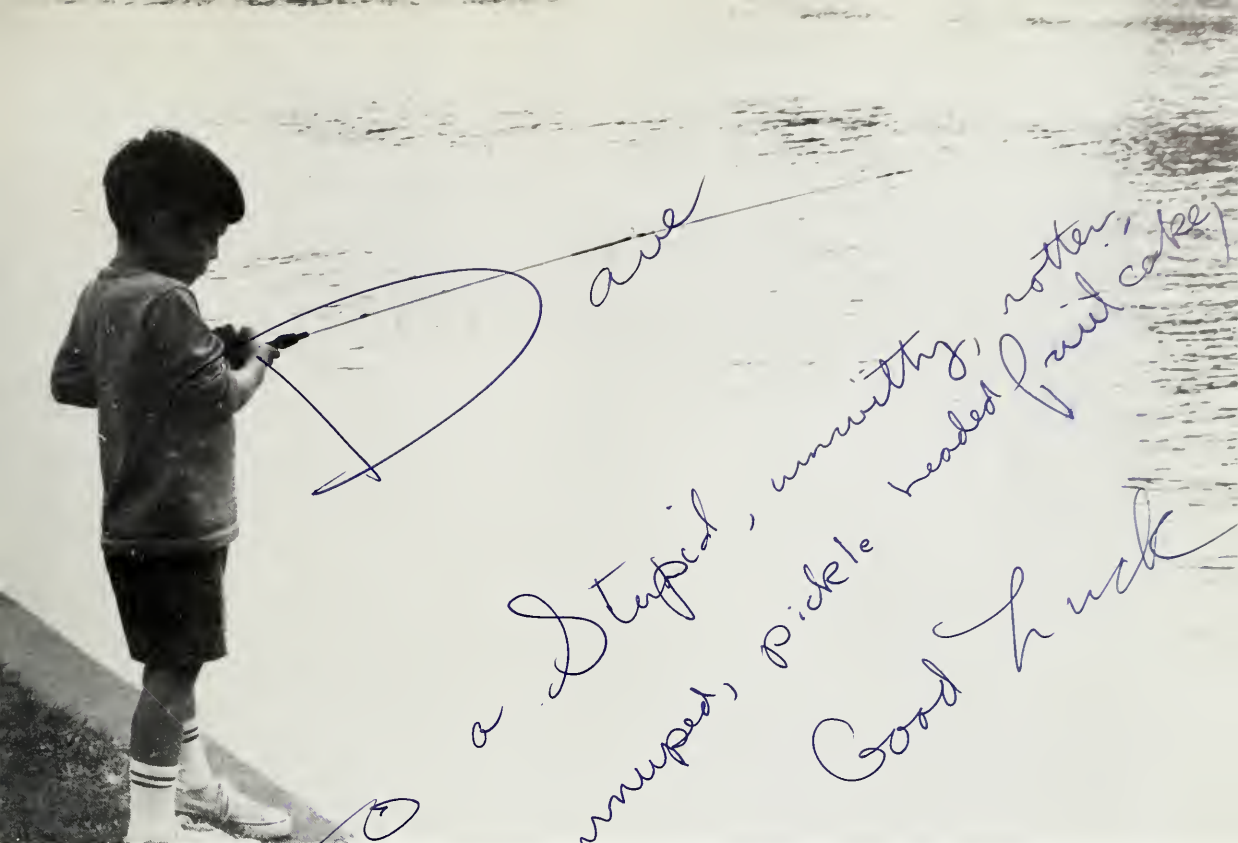 Dave
a Stupid, unwrithy, rotten,
pickle headed fruitcake,
Good Luck